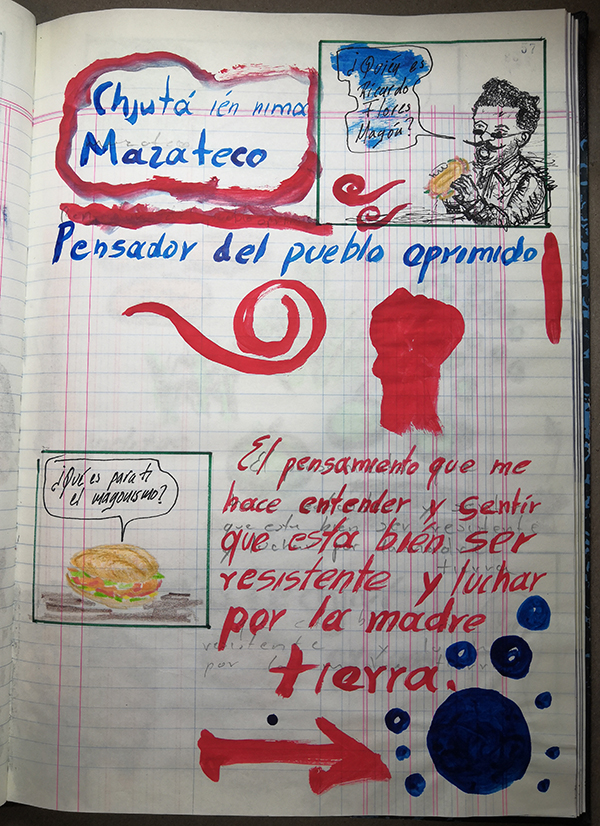 37
Chjutá ién nima
Mazateco
¿Quién es
Ricardo
Flores
Magón?
Pensador del pueblo oprimido
¿Qué es para ti
el magonismo?
El pensamiento que me
hace entender y sentir
que esta bién ser
resistente y luchar
por la madre
tierra.